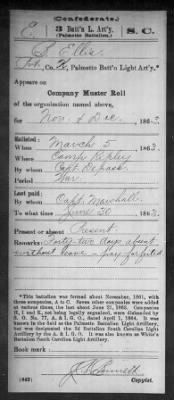 (Confederate.)
E 3 Batt'n L. Art'y. S. C.
(Palmetto Battalion.)
S Ellis
Pvt., Co. K, Palmetto Batt'n Light Art'y.*
Appears on
Company Muster Roll
of the organization named above,
for Nov. & Dec., 1863.
Enlisted:
When March 5, 1863.
Where Camp Ripley
By whom Capt. Depass
Period War
Last paid:
By whom Capt. Marshall
To what time June 30, 1863.
Present or absent Present
Remarks: Forty-two days absent
without leave - pay forfeited
*This battalion was formed about November, 1861, with
three companies, A to C. Seven other companies were added
at various times, the last about June 21, 1862. Companies
H, I and K, not being legally organized, were disbanded by
S. O. No. 77, A. & I. G. O., dated April 1, 1864. It was
known in the field as the Palmetto Battalion Light Artillery,
but was designated the 3d Battalion South Carolina Light
Artillery by the A. & I. G. O. It was also known as White's
Battalion South Carolina Light Artillery.
Book mark:
(642)
Copyist.